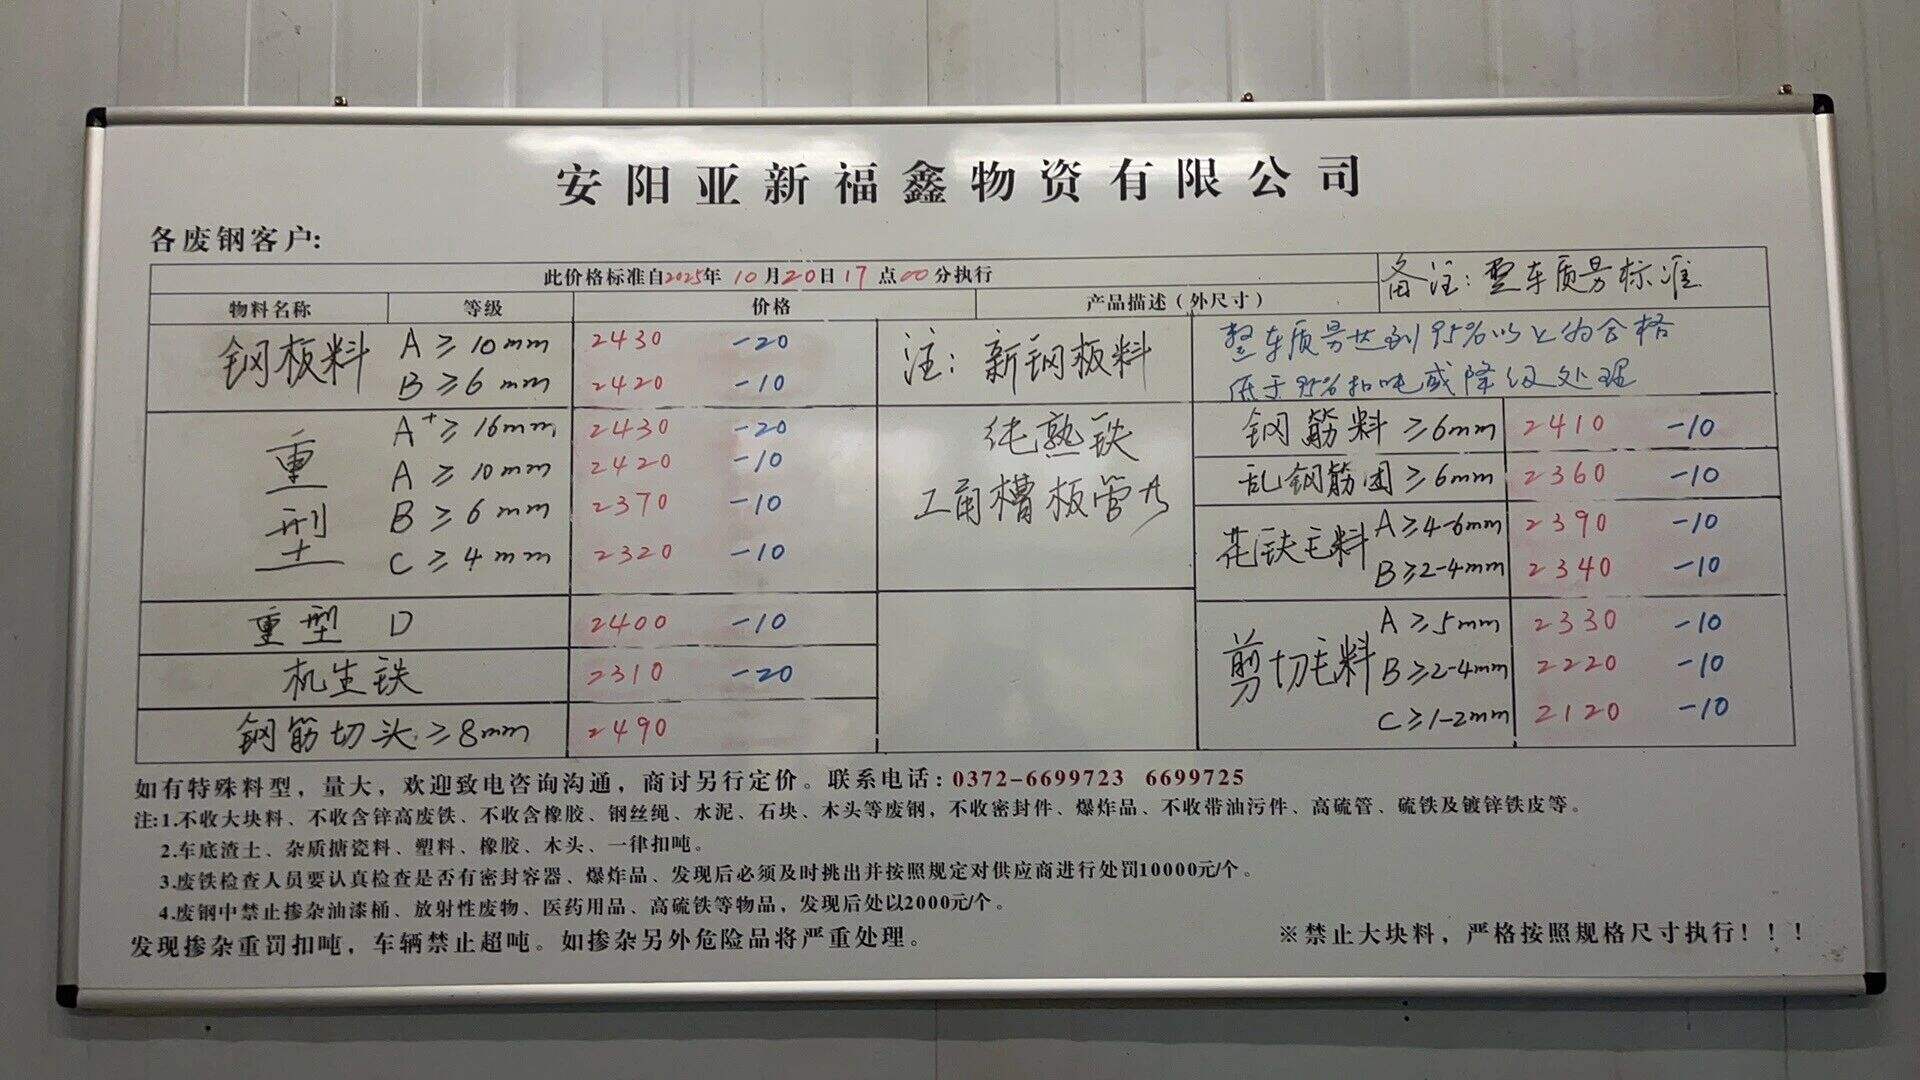 安阳亚新福鑫物资有限公司
各废钢客户:
此价格标准自2025年10月20日17点00分执行
备注:整车质量标准
物料名称 等级 价格 产品描述(外尺寸)
钢板料 A≥10mm 2430 -20
B≥6mm 2420 -10
注:新钢板料
整车质量达到95%以上为合格
低于95%扣吨或降级处理
重型 A+≥16mm 2430 -20
A≥10mm 2420 -10
B≥6mm 2370 -10
C≥4mm 2320 -10
纯熟铁
工角槽板管
重型 D 2400 -10
机生铁 2310 -20
钢筋切头≥8mm 2490
钢筋料≥6mm 2410 -10
乱钢筋团≥6mm 2360 -10
花铁毛料 A≥4-6mm 2390 -10
B≥2-4mm 2340 -10
剪切毛料 A≥5mm 2330 -10
B≥2-4mm 2220 -10
C≥1-2mm 2120 -10
如有特殊料型,量大,欢迎致电咨询沟通,商讨另行定价。联系电话:0372-6699723 6699725
注:1.不收大块料、不收含锌高废铁、不收含橡胶、钢丝绳、水泥、石块、木头等废钢,不收密封件、爆炸品、不收带油污件、高硫管、硫铁及镀锌铁皮等。
2.车底渣土、杂质搪瓷料、塑料、橡胶、木头、一律扣吨。
3.废铁检查人员要认真检查是否有密封容器、爆炸品、发现后必须及时挑出并按照规定对供应商进行处罚10000元/个。
4.废钢中禁止掺杂油漆桶、放射性废物、医药用品、高硫铁等物品,发现后处以2000元/个。
发现掺杂重罚扣吨,车辆禁止超吨。如掺杂另外危险品将严重处理。
※禁止大块料,严格按照规格尺寸执行!!!